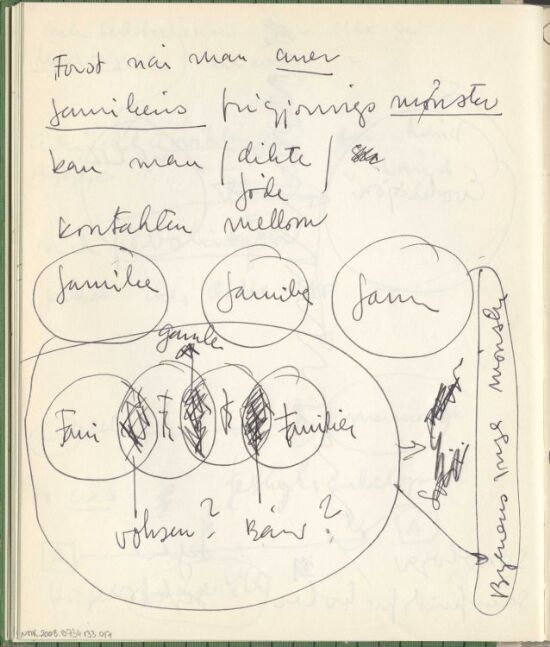 Først når man aner
familiens frigjørings mønster
kan man / dikte /
føde
kontakten mellom
familie familie fam
gamle
Fam F f Familier
voksen? Barn?
Byenens unge mønster
NMK.2008.0734.133.017